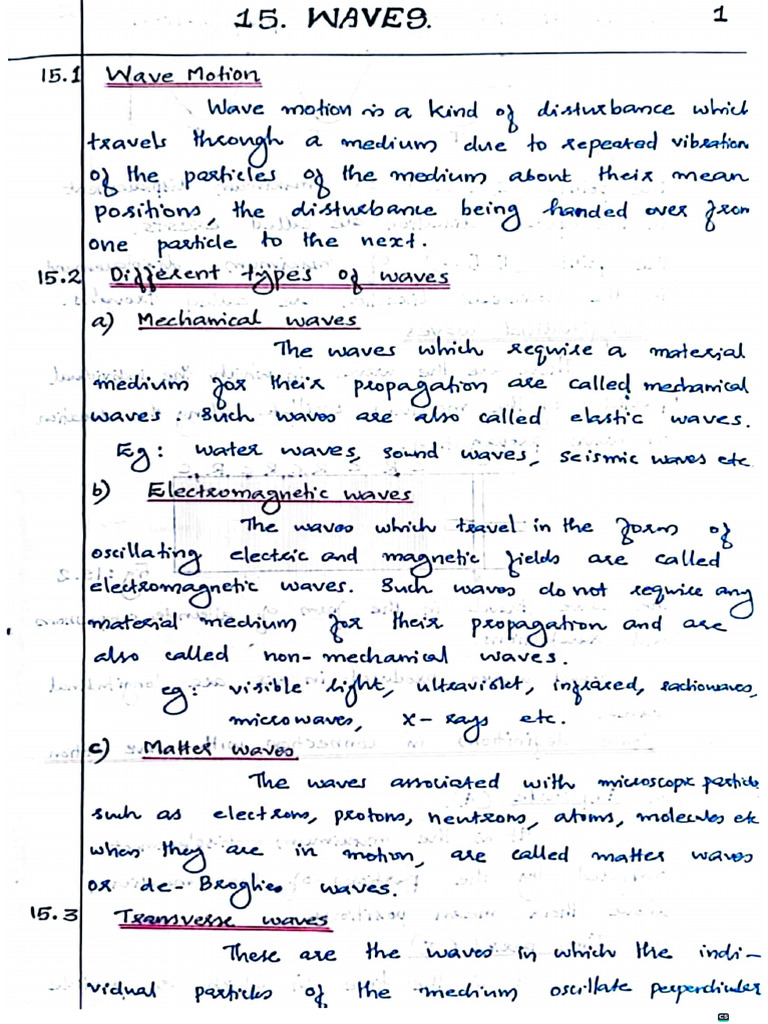 15. WAVES. 1
15.1 Wave Motion
Wave motion is a kind of disturbance which
travels through a medium due to repeated vibration
of the particles of the medium about their mean
positions, the disturbance being handed over from
one particle to the next.
15.2 Different types of waves
a) Mechanical waves
The waves which require a material
medium for their propagation are called mechanical
waves. Such waves are also called elastic waves.
Eg: water waves, sound waves, seismic waves etc
b) Electromagnetic waves
The waves which travel in the form of
oscillating electric and magnetic fields are called
electromagnetic waves. Such waves do not require any
material medium for their propagation and are
also called non-mechanical waves.
eg: visible light, ultraviolet, infrared, radiowaves,
microwaves, x-rays etc.
c) Matter waves
The waves associated with microscopic particles
such as electrons, protons, neutrons, atoms, molecules etc
when they are in motion, are called matter waves
or de-Broglie waves.
15.3 Transverse waves
These are the waves in which the indi-
vidual particles of the medium oscillate perpendicular
CS